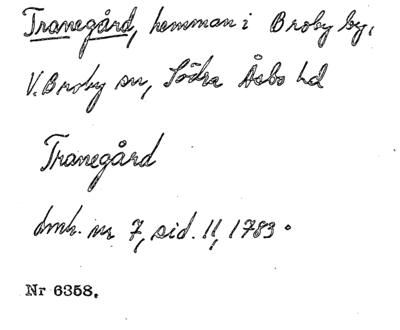 Tranegård, hemman i Broby by,
V. Broby sn, Södra Åsbo hd
Tranegård
dmh. nr 7, sid. 11, 1783.
Nr 6358.